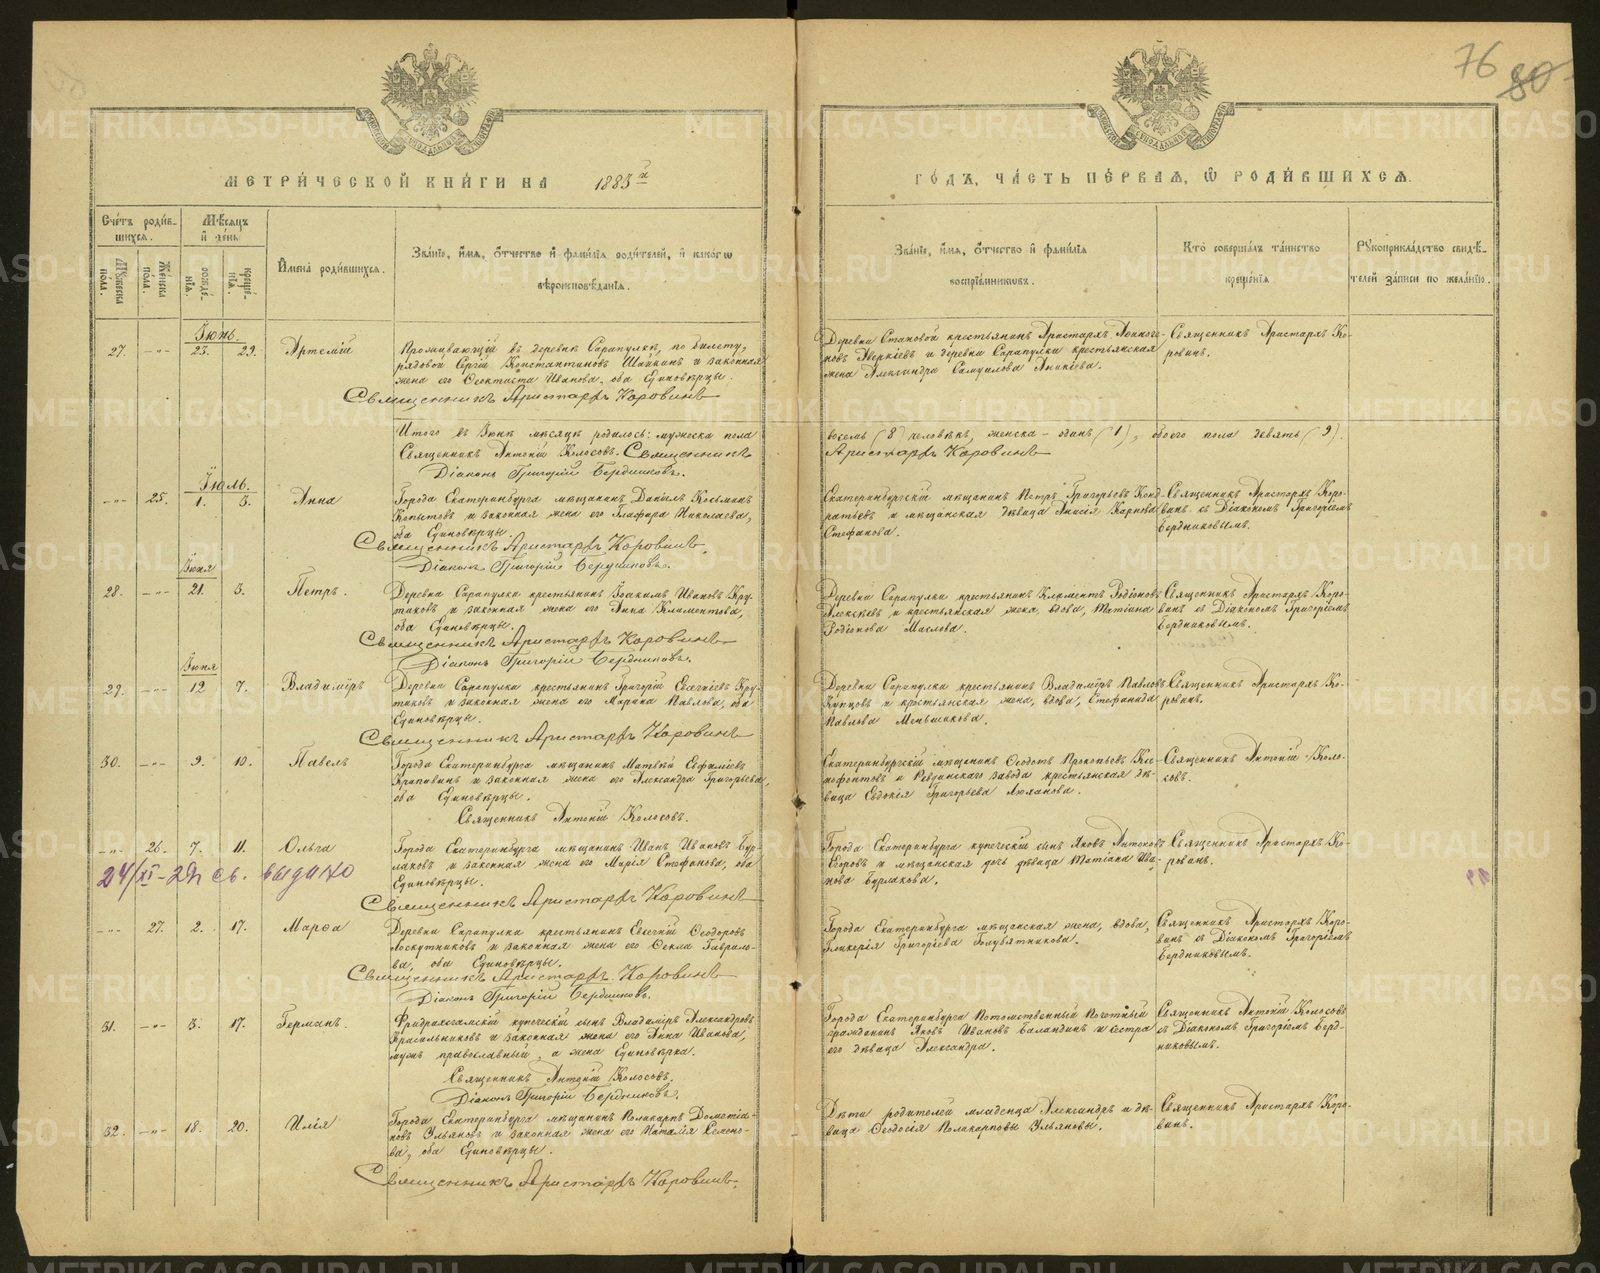 76 80
МЕТРИ́ЧЕСКОЙ КНИ́ГИ НА 1885й ГО́ДЪ, ЧА́СТЬ ПЕ́РВАЯ, Ѡ РОДИ́ВШИХСЯ.
Сче́тъ роди́в-
шихся.
Мѣ́сяцъ
и҆ де́нь
Мꙋ́жеска по́ла.
Же́нска по́ла.
рожде́нїя.
креще́нїя.
И҆мена̀ роди́вшихся.
Зва́нїе, и҆́мя, ѻ҆́тчество и҆ фами́лїя роди́телей, и҆ како́гѡ
вѣроисповѣ́данїѧ.
Зва́нїе, и҆́мя, ѻ҆́тчество и҆ фами́лїя
воспрїе́мниковъ.
Кто̀ соверша́лъ та́инство
креще́нїя
Рꙋкоприкла́дство свидѣ́-
телей за́писи по жела́нїю.
Іюнь.
27. -„- 23. 29. Артемій
Проживающій въ деревнѣ Сарапулкѣ, по билету,
рядовой Сергій Константиновъ Шайкинъ и законная
жена его Ѳеоктиста Иванова, оба Единовѣрцы.
Священникъ Аристархъ Коровинъ
Деревни Становой крестьянинъ Аристархъ
новъ Аверкіевъ и деревни Сарапулки крестьянская
жена Александра Самуилова Аникіева.
Священникъ Аристархъ Ко-
ровинъ.
Итого въ Іюнѣ мѣсяцѣ родилось: мужеска пола восемь (8) человѣкъ, женска - одинъ (1), обоего пола девять (9).
Священникъ Антоній Колосовъ. Священникъ Аристархъ Коровинъ
Діаконъ Григорій Бердниковъ.
Іюль.
-„- 25. 1. 3. Анна
Города Екатеринбурга мѣщанинъ Даніилъ Косьминъ
Копытовъ и законная жена его Глафира Николаева,
оба Единовѣрцы.
Священникъ Аристархъ Коровинъ.
Діаконъ Григорій Бердниковъ.
Екатеринбургскій мѣщанинъ Петръ Григорьевъ Конд-
ратьевъ и мѣщанская дѣвица Анисія Карпова
Стефанова.
Священникъ Аристархъ Коро-
винъ съ Діакономъ Григоріемъ
Бердниковымъ.
Іюня
28. -„- 21. 3. Петръ.
Деревни Сарапулки крестьянинъ Іоакимъ Ивановъ Кру-
тиковъ и законная жена его Анна Климентова,
оба Единовѣрцы.
Священникъ Аристархъ Коровинъ
Діаконъ Григорій Бердниковъ.
Деревни Сарапулки крестьянинъ Климентъ Родіоновъ
Алексѣевъ и крестьянская жена, вдова, Татіана
Родіонова Маслова.
Священникъ Аристархъ Коро-
винъ съ Діакономъ Григоріемъ
Бердниковымъ.
Іюня
29. -„- 12 7. Владиміръ
Деревни Сарапулки крестьянинъ Григорій Евгеніевъ Кру-
тиковъ и законная жена его Марина Павлова, оба
Единовѣрцы.
Священникъ Аристархъ Коровинъ
Деревни Сарапулки крестьянинъ Владиміръ Павловъ
Купцовъ и крестьянская жена, вдова, Стефанида
Павлова Меньшикова.
Священникъ Аристархъ Ко-
ровинъ.
30. -„- 9. 10. Павелъ
Города Екатеринбурга мѣщанинъ Матвѣй Евфиміевъ
Храповинъ и законная жена его Александра Григорьева,
оба Единовѣрцы.
Священникъ Антоній Колосовъ.
Екатеринбургскій мѣщанинъ Ѳеодотъ Прокопьевъ Ксе-
нофонтовъ и Ревдинскаго завода крестьянская дѣ-
вица Евдокія Григорьева Люханова.
Священникъ Антоній Коло-
совъ.
-„- 26. 7. 11. Ольга
Города Екатеринбурга мѣщанинъ Иванъ Ивановъ Бур-
лаковъ и законная жена его Марія Стефанова, оба
Единовѣрцы.
Священникъ Аристархъ Коровинъ
Города Екатеринбурга купеческій сынъ Яковъ Антоновъ
Егоровъ и мѣщанская дочь дѣвица Татіана Ива-
нова Бурлакова.
Священникъ Аристархъ Ко-
ровинъ.
24/XI - 29г св. выдано
-„- 27. 2. 17. Марѳа
Деревни Сарапулки крестьянинъ Евгеній Ѳеодоровъ
Лоскутниковъ и законная жена его Ѳекла Гаврило-
ва, оба Единовѣрцы.
Священникъ Аристархъ Коровинъ
Діаконъ Григорій Бердниковъ.
Города Екатеринбурга мѣщанская жена, вдова,
Гликерія Григоріева Голубятникова.
Священникъ Аристархъ Коро-
винъ съ Діакономъ Григоріемъ
Бердниковымъ.
31. -„- 3. 17. Германъ.
Фридрихсгамскій купеческій сынъ Владиміръ Александровъ
Красильниковъ и законная жена его Анна Иванова,
мужъ православный, а жена Единовѣрка.
Священникъ Антоній Колосовъ.
Діаконъ Григорій Бердниковъ.
Города Екатеринбурга Потомственный Почетный
гражданинъ Яковъ Ивановъ Баландинъ и сестра
его дѣвица Александра.
Священникъ Антоній Колосовъ
съ Діакономъ Григоріемъ Берд-
никовымъ.
32. -„- 18. 20. Илія
Города Екатеринбурга мѣщанинъ Поликарпъ Дометіа-
новъ Ульяновъ и законная жена его Наталія Семено-
ва, оба Единовѣрцы.
Священникъ Аристархъ Коровинъ.
Дѣти родителей младенца Александръ и дѣ-
вица Ѳеодосія Поликарповы Ульяновы.
Священникъ Аристархъ Коро-
винъ.
METRIKI.GASO-URAL.RU